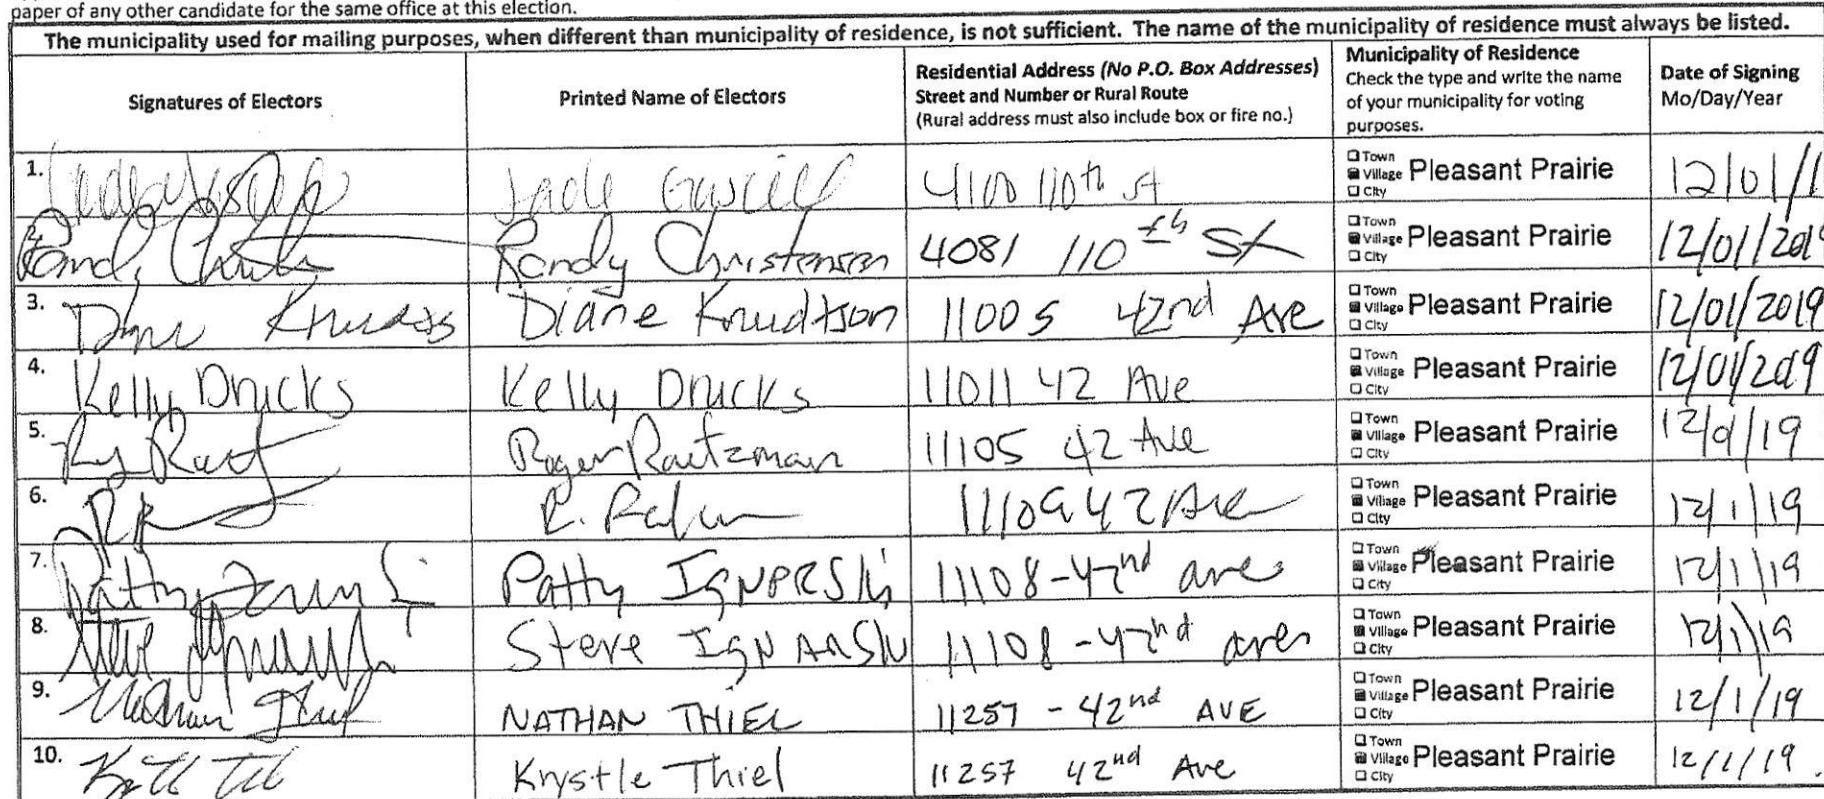 paper of any other candidate for the same office at this election.
The municipality used for mailing purposes, when different than municipality of residence, is not sufficient. The name of the municipality of residence must always be listed.
Signatures of Electors
Printed Name of Electors
Residential Address (No P.O. Box Addresses)
Street and Number or Rural Route
(Rural address must also include box or fire no.)
Municipality of Residence
Check the type and write the name
of your municipality for voting
purposes.
Date of Signing
Mo/Day/Year
1. Jade 4100 110th St Town Village City Pleasant Prairie 12/01/1
2. Randy Christensen 4081 110th St Town Village City Pleasant Prairie 12/01/201
3. Diane Knudtson 11005 42nd Ave Town Village City Pleasant Prairie 12/01/2019
4. Kelly Drucks Kelly Drucks 11011 42 Ave Town Village City Pleasant Prairie 12/01/2019
5. Roger Raetzman 11105 42 Ave Town Village City Pleasant Prairie 12/ /19
6. R. 11109 42 Ave Town Village City Pleasant Prairie 12/1/19
7. Patty Patty 11108-42nd ave Town Village City Pleasant Prairie 12/1/19
8. Steve Steve 11108-42nd ave Town Village City Pleasant Prairie 12/1/19
9. NATHAN THIEL 11257 - 42nd AVE Town Village City Pleasant Prairie 12/1/19
10. Krystle Thiel 11257 42nd Ave Town Village City Pleasant Prairie 12/1/19.